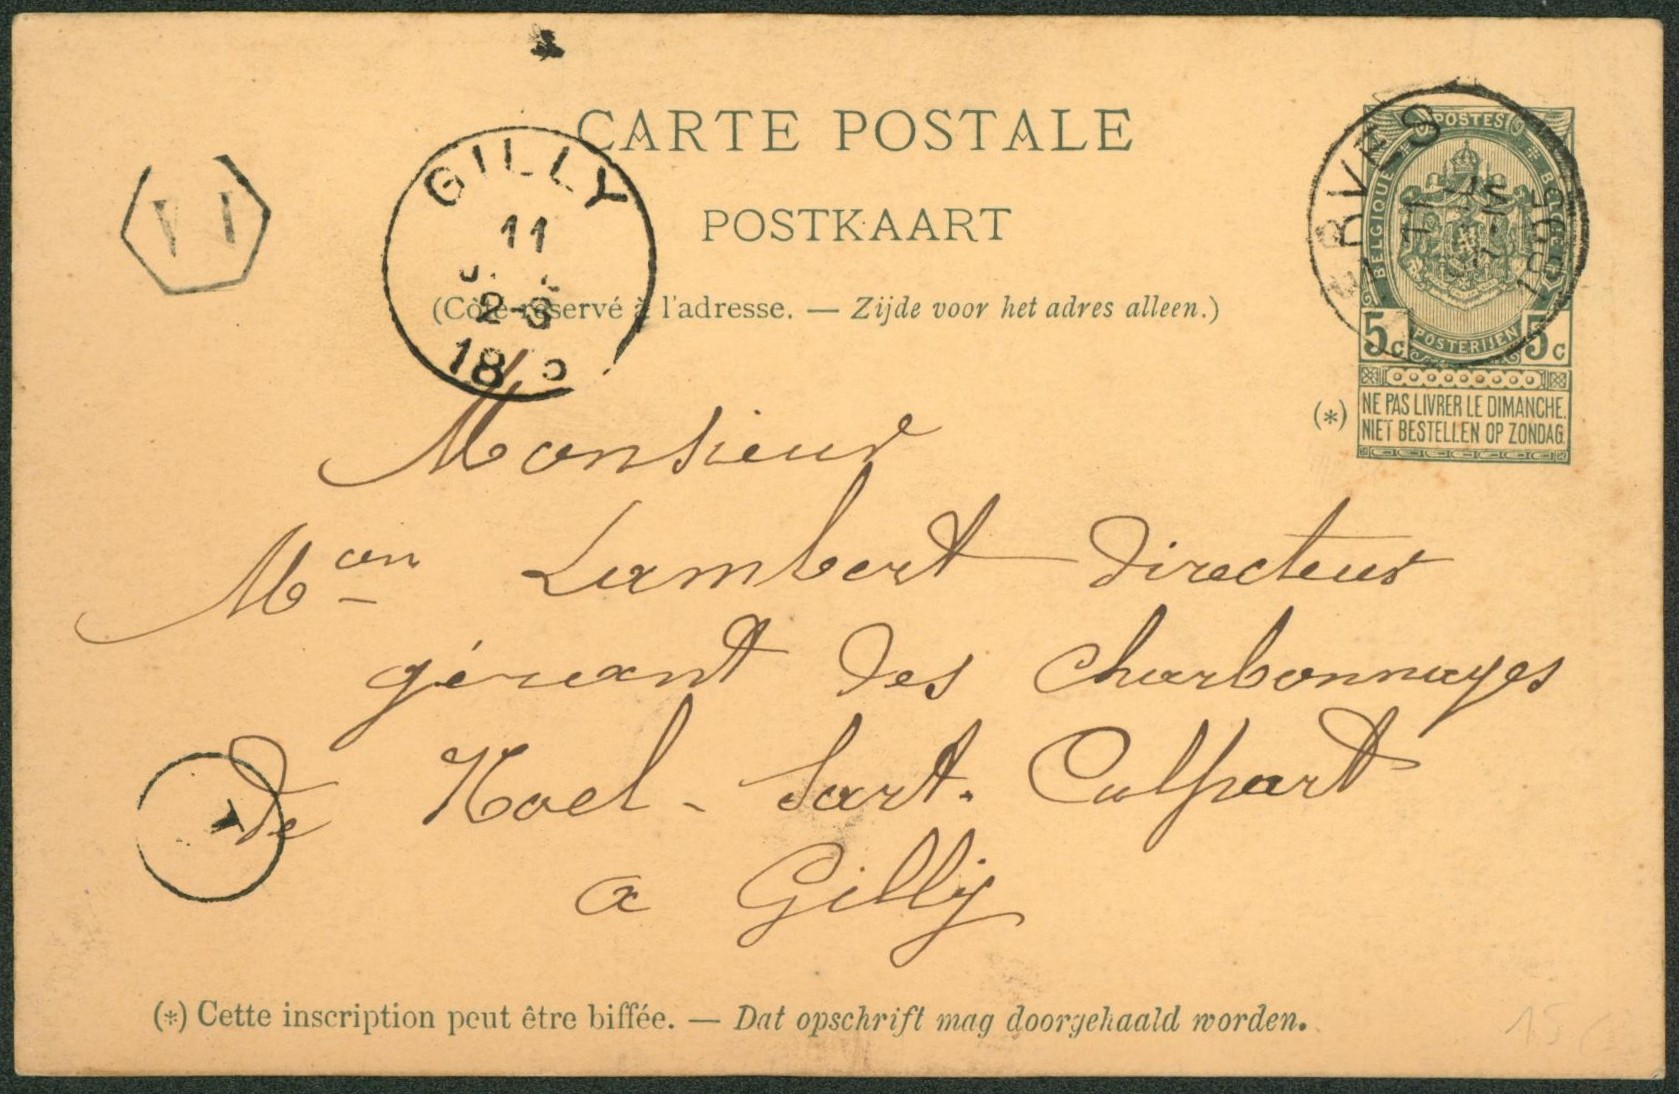 CARTE POSTALE
POSTKAART
(Côté réservé à l'adresse. — Zijde voor het adres alleen.)
GILLY
11
2-3
18
POSTES
BELGIQUE
POSTERIJEN
5c 5c
(*)
NE PAS LIVRER LE DIMANCHE.
NIET BESTELLEN OP ZONDAG.
11
1895
Monsieur
Mon Lambert Directeur
gérant des Charbonnages
de Noel-Sart-Culpart
a Gilly
(*) Cette inscription peut être biffée. — Dat opschrift mag doorgehaald worden.
15